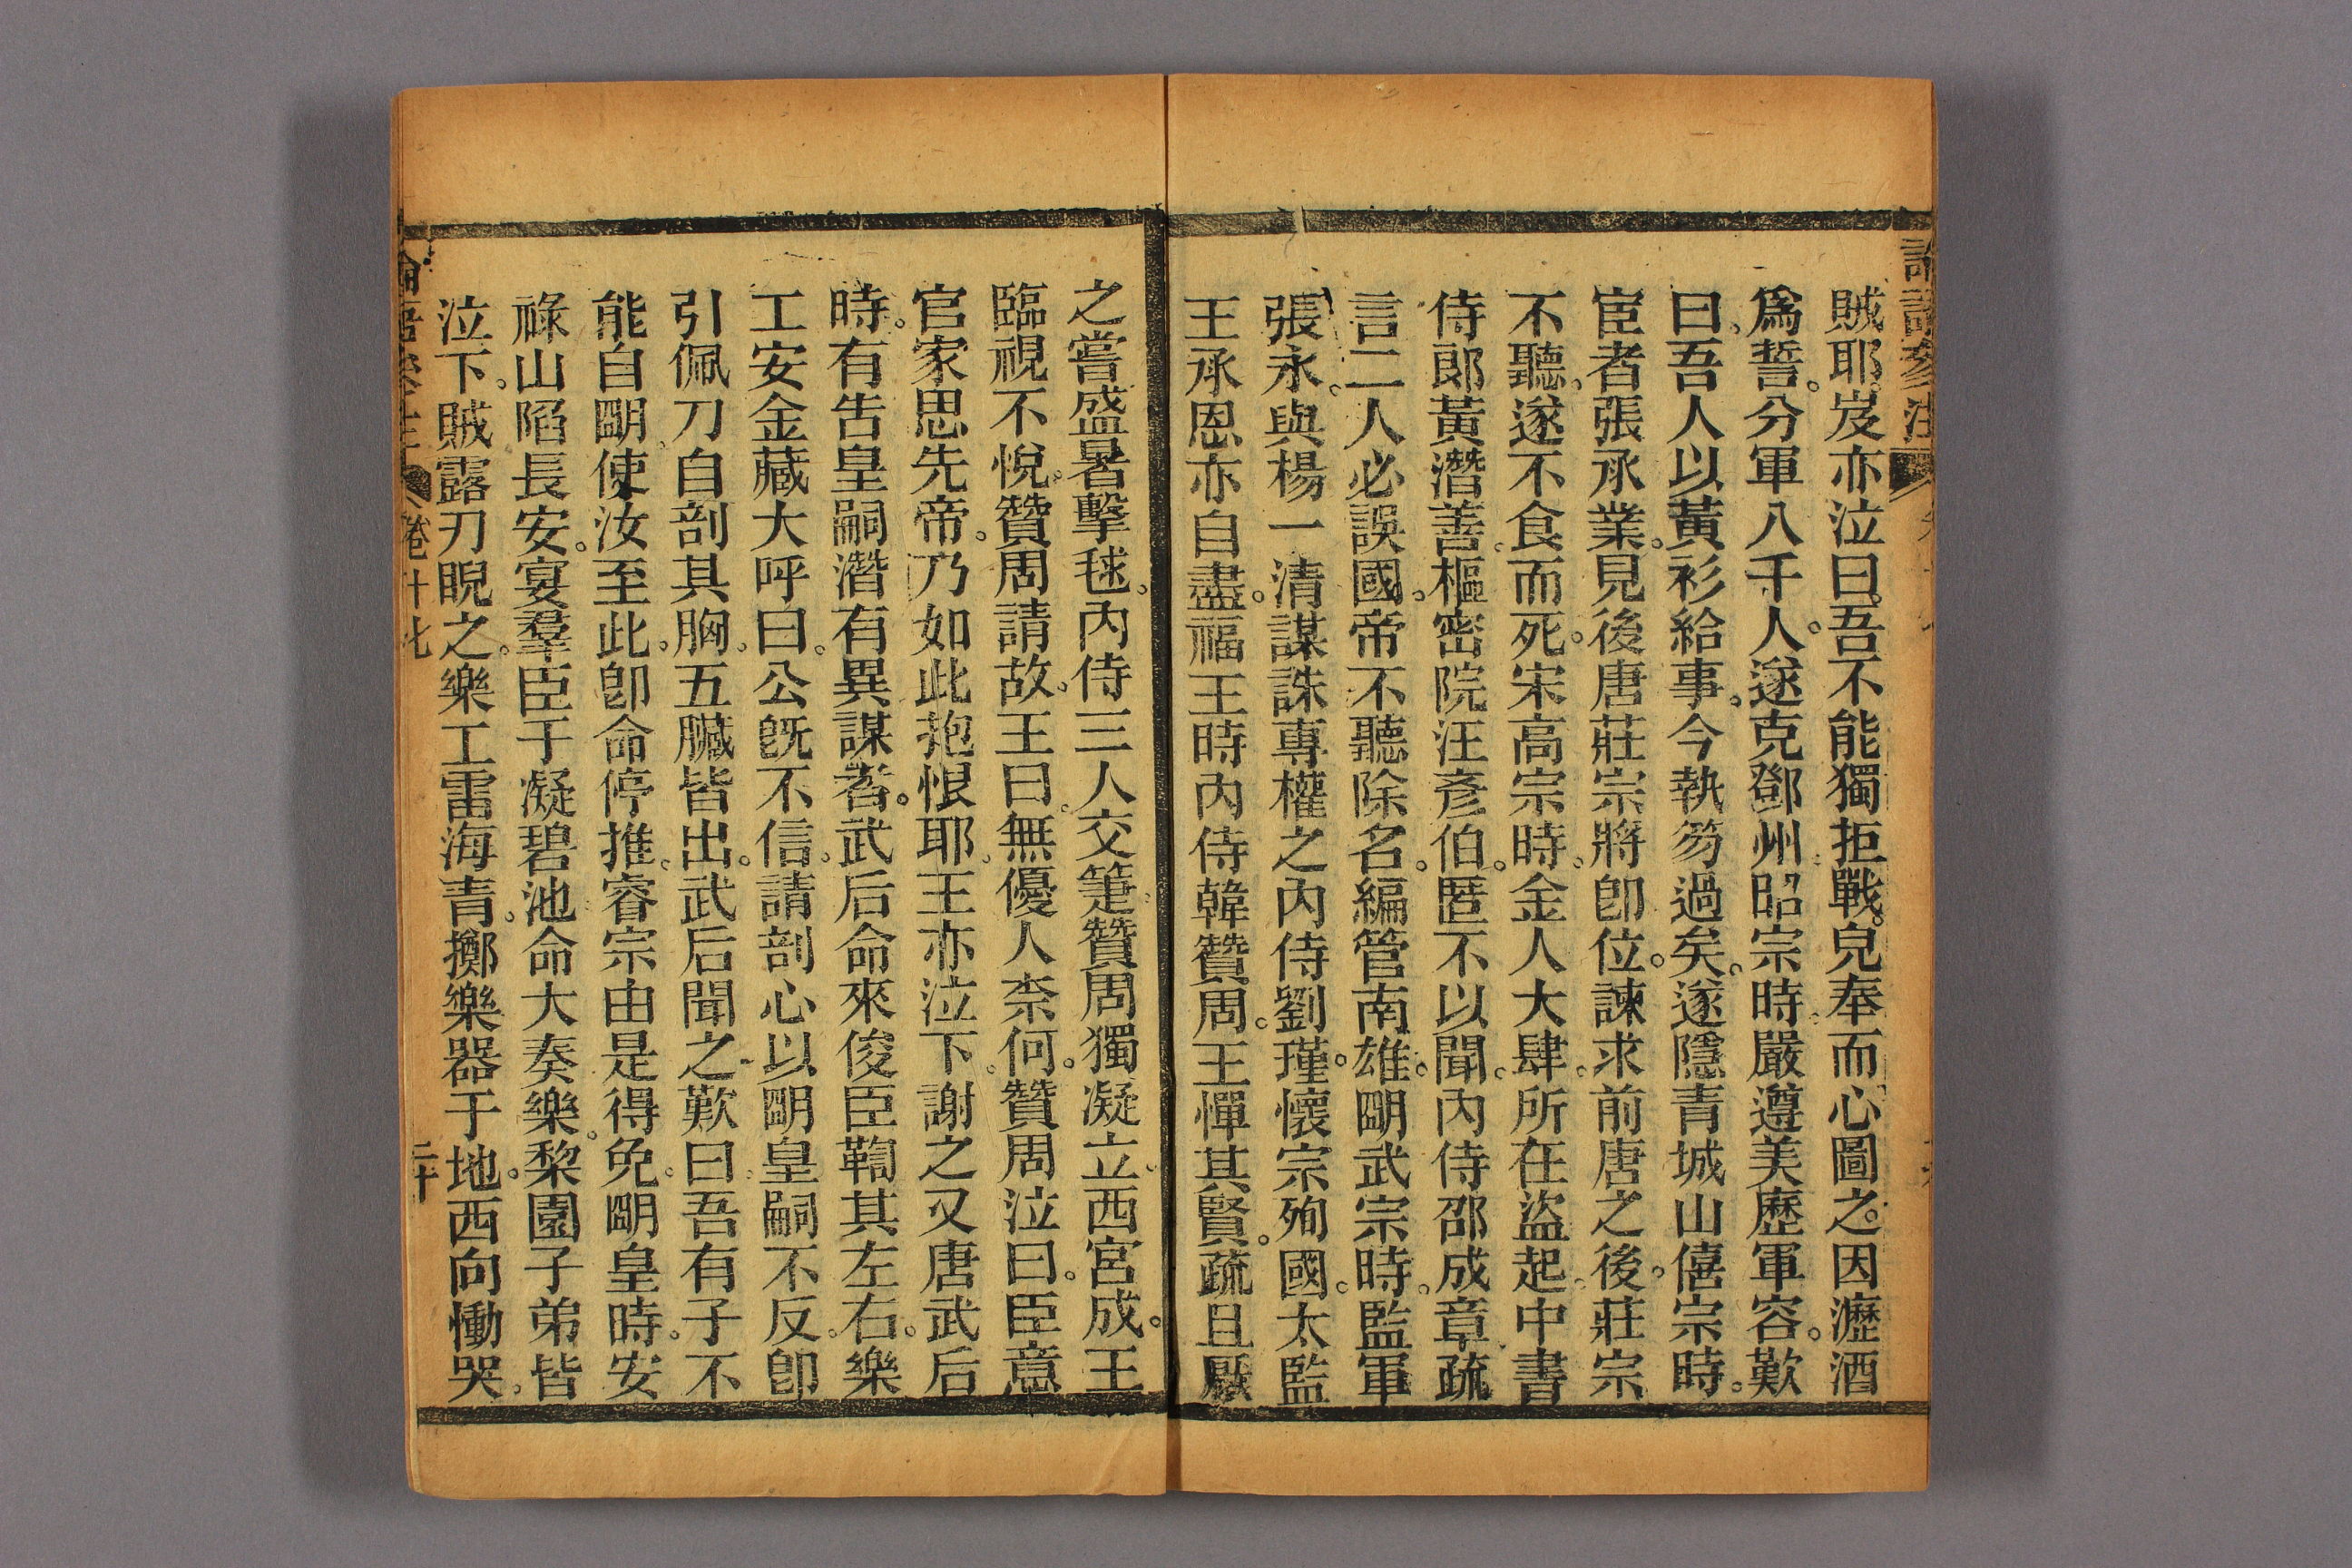 賊耶。岌亦泣曰。吾不能獨拒戰。皃奉而心圖之。因瀝酒
爲誓。分軍八千人。遂克鄧州。昭宗時。嚴遵美歷軍容。歎
曰。吾人以黃衫給事。今執笏過矣。遂隱青城山僖宗時。
宦者張承業。見後唐莊宗將卽位。諫求前唐之後。莊宗
不聽。遂不食而死。宋高宗時。金人大肆。所在盜起。中書
侍郎黃潛善。樞密院汪彥伯。匿不以聞。內侍邵成章疏
言二人必誤國。帝不聽除名。編管南雄。明武宗時。監軍
張永。與楊一清謀誅專權之內侍劉瑾。懷宗殉國。太監
王承恩亦自盡。福王時內侍韓贊周。王憚其賢。疏且厭
之嘗盛暑擊毬。內侍三人交箑。贊周獨凝立西宮成。王
臨視不悅。贊周請故。王曰。無優人柰何。贊周泣曰。臣意
官家思先帝。乃如此抱恨耶。王亦泣下。謝之又唐武后
時。有告皇嗣潛有異謀者。武后命來俊臣鞫其左右。樂
工安金藏大呼曰。公旣不信。請剖心以明皇嗣不反。卽
引佩刀自剖其胸。五臟皆出。武后聞之歎曰。吾有子不
能自明。使汝至此。卽命停推。睿宗由是得免。明皇時。安
祿山陷長安。宴羣臣于凝碧池命大奏樂。棃園子弟皆
泣下。賊露刃睨之。樂工雷海青。擲樂器于地。西向慟哭。
卷十七
二十